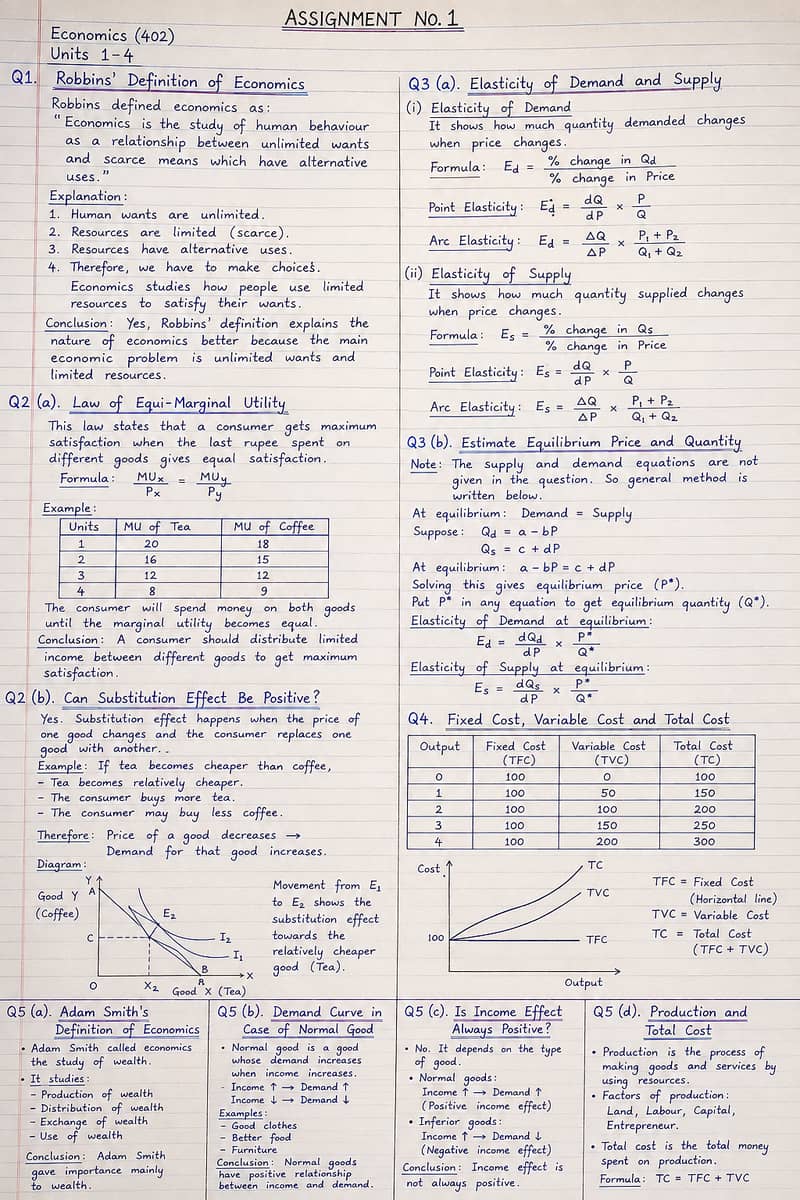 ASSIGNMENT No. 1
Economics (402)
Units 1-4
Q1. Robbins' Definition of Economics
Robbins defined economics as:
"Economics is the study of human behaviour
as a relationship between unlimited wants
and scarce means which have alternative
uses."
Explanation:
1. Human wants are unlimited.
2. Resources are limited (scarce).
3. Resources have alternative uses.
4. Therefore, we have to make choices.
Economics studies how people use limited
resources to satisfy their wants.
Conclusion: Yes, Robbins' definition explains the
nature of economics better because the main
economic problem is unlimited wants and
limited resources.
Q2 (a). Law of Equi-Marginal Utility
This law states that a consumer gets maximum
satisfaction when the last rupee spent on
different goods gives equal satisfaction.
Formula: MUx / Px = MUy / Py
Example:
Units | MU of Tea | MU of Coffee
1 | 20 | 18
2 | 16 | 15
3 | 12 | 12
4 | 8 | 9
The consumer will spend money on both goods
until the marginal utility becomes equal.
Conclusion: A consumer should distribute limited
income between different goods to get maximum
satisfaction.
Q2 (b). Can Substitution Effect Be Positive?
Yes. Substitution effect happens when the price of
one good changes and the consumer replaces one
good with another. .
Example: If tea becomes cheaper than coffee,
- Tea becomes relatively cheaper.
- The consumer buys more tea.
- The consumer may buy less coffee.
Therefore: Price of a good decreases →
Demand for that good increases.
Diagram:
Y
Good Y
(Coffee)
A
E₂
C
I₂
I₁
B
X
O
X₂
R
Good X (Tea)
Movement from E₁
to E₂ shows the
substitution effect
towards the
relatively cheaper
good (Tea).
Q3 (a). Elasticity of Demand and Supply
(i) Elasticity of Demand
It shows how much quantity demanded changes
when price changes.
Formula: Ed = % change in Qd / % change in Price
Point Elasticity: Ed = dQ / dP × P / Q
Arc Elasticity: Ed = ΔQ / ΔP × P₁ + P₂ / Q₁ + Q₂
(ii) Elasticity of Supply
It shows how much quantity supplied changes
when price changes.
Formula: Es = % change in Qs / % change in Price
Point Elasticity: Es = dQ / dP × P / Q
Arc Elasticity: Es = ΔQ / ΔP × P₁ + P₂ / Q₁ + Q₂
Q3 (b). Estimate Equilibrium Price and Quantity
Note: The supply and demand equations are not
given in the question. So general method is
written below.
At equilibrium: Demand = Supply
Suppose: Qd = a - bP
Qs = c + dP
At equilibrium: a - bP = c + dP
Solving this gives equilibrium price (P*).
Put P* in any equation to get equilibrium quantity (Q*).
Elasticity of Demand at equilibrium:
Ed = dQd / dP × P* / Q*
Elasticity of Supply at equilibrium:
Es = dQs / dP × P* / Q*
Q4. Fixed Cost, Variable Cost and Total Cost
Output | Fixed Cost (TFC) | Variable Cost (TVC) | Total Cost (TC)
0 | 100 | 0 | 100
1 | 100 | 50 | 150
2 | 100 | 100 | 200
3 | 100 | 150 | 250
4 | 100 | 200 | 300
Cost
TC
TVC
100
TFC
Output
TFC = Fixed Cost
(Horizontal line)
TVC = Variable Cost
TC = Total Cost
(TFC + TVC)
Q5 (a). Adam Smith's
Definition of Economics
• Adam Smith called economics
the study of wealth.
• It studies:
- Production of wealth
- Distribution of wealth
- Exchange of wealth
- Use of wealth
Conclusion: Adam Smith
gave importance mainly
to wealth.
Q5 (b). Demand Curve in
Case of Normal Good
• Normal good is a good
whose demand increases
when income increases.
- Income ↑ → Demand ↑
Income ↓ → Demand ↓
Examples:
- Good clothes
- Better food
- Furniture
Conclusion: Normal goods
have positive relationship
between income and demand.
Q5 (c). Is Income Effect
Always Positive?
• No. It depends on the type
of good.
• Normal goods:
Income ↑ → Demand ↑
(Positive income effect)
• Inferior goods:
Income ↑ → Demand ↓
(Negative income effect)
Conclusion: Income effect is
not always positive.
Q5 (d). Production and
Total Cost
• Production is the process of
making goods and services by
using resources.
• Factors of production:
Land, Labour, Capital,
Entrepreneur.
• Total cost is the total money
spent on production.
Formula: TC = TFC + TVC